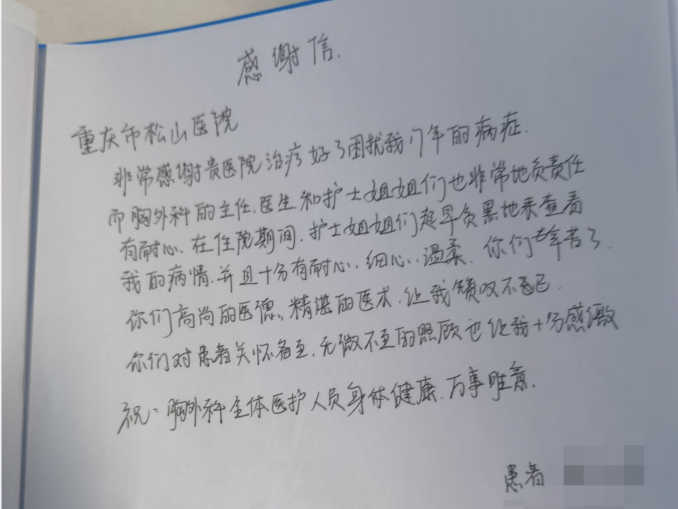 感谢信.
重庆市松山医院
非常感谢贵医院治疗好了困扰我17年的病症.
而胸外科的主任.医生和护士姐姐们也非常地负责任
有耐心.在住院期间.护士姐姐们起早贪黑地来查看
我的病情.并且十分有耐心.细心.温柔.你们辛苦了.
你们高尚的医德,精湛的医术.让我赞叹不已
你们对患者关怀备至.无微不至的照顾也让我十分感激
祝: 胸外科全体医护人员身体健康.万事胜意.
患者